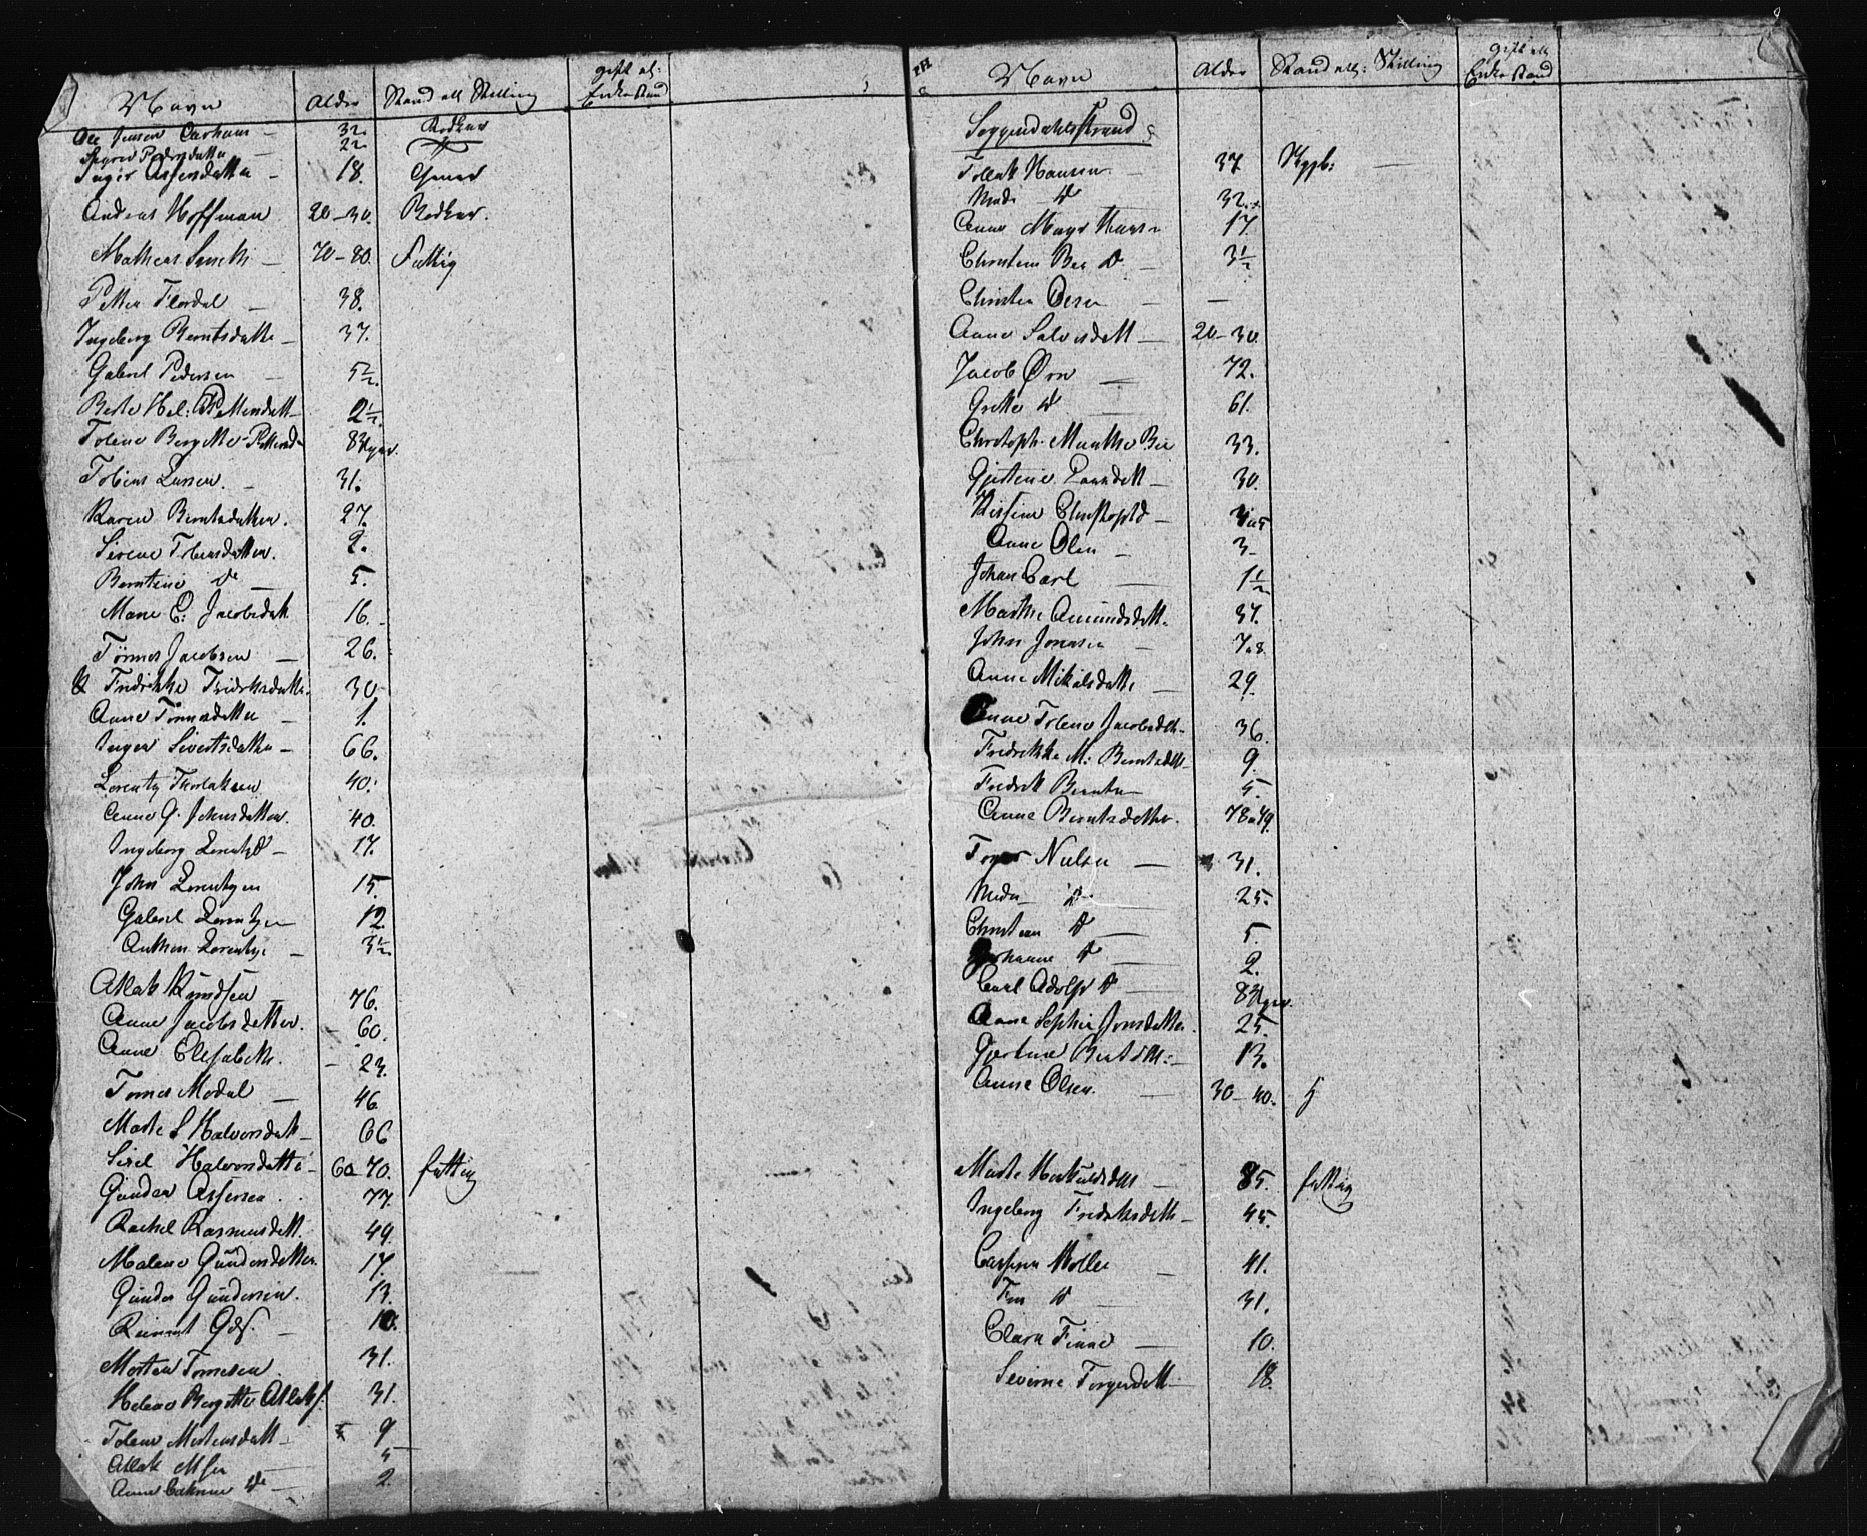 Navn Alder Stand ell Stilling gift ell: Enkestand
Ole Jensen 32 Bødker
Sigrid Pedersdatter 22
Inger Assersdatter – 18.
Andreas Hoffman 20–30. Bødker.
Mathias Smith – 70–80. Fattig
Petter Flordal – 38.
Ingeborg Berntsdatter – 37.
Gabriel Pedersen 5 1/2.
Berte Hel: Pettersdatt 2 1/2.
Tolene Bergitte Pettersd 8 Dger
Tobias Larsen. – 31.
Karen Berntsdatter. 27.
Sirene Tobiasdatter. 2.
Berntine Do – 5.
Marie C: Jacobsdatt 16.
Tønnes Jacobsen – 26.
& Fredrikke Fredriksdatter. 30
Anne Tønnesdatter – 1.
Inger Sivertsdatter – 66.
Lorentz Thorlaksen 40.
Anne G. Johnsdatter. 40.
Ingeborg Lorentzd – 17.
John Lorentzen 15.
Gabriel Lorentzen 12.
Anthon Lorentze – 3 1/2
Atlak Knudsen 76.
Anne Jacobsdatter. 60.
Anne Elisabeth. – 23.
Tønnes Modal – 46.
Marte S Halvorsdatt – 66
Sisel Halvorsdatter – 60 70. fattig
Gunder Assersen . . 77.
Rachel Rasmusdatt. 49.
Malene Gundersdatter. 17.
Gunder Gundersen. 13.
Reinert Gds. – 10.
Morten Tønnesen 31.
Helene Bergitte Atlaks. 31.
Tolene Mortensdatt – 9
Atlak Msen 5
Anne Do – 2.
Navn Alder Stand ell: Stilling gift ell Enkestand
Soggendahlsstrand
Tollak Hansen – 37
Mad: Do 32.
Anne Hansen 17.
3 1/2
Christen Olsen – –
Anne Salvesdatt – 20–30.
Jacob Ørn – 72.
Grethe Do 61.
Christoph. Munthe Bie 33.
30.
Kirstine Christophd – 4 a 5
Anne Olen – 3
Johan Carl – 1 1/2
Marthe Amundsdatt. 37.
John Jonasen – 7 a 8.
Anne Mikalsdatter – 29.
Anne Tolene Jacobsdatt. 36.
Fredrikke M: Berntsdatt 9.
Fredrik Berntsen 5.
Anne Berntsdatter. 78 a 79.
Nielsen – 31.
Mad – Do 25.
Christian Do – 5.
Johanne Do – 2.
Carl Adolph Do – 8 Dger.
Anne Sophie Jonsdatter. 25.
Gjertine Berntdtt: – 13.
Anne Olsen. – 30–40.
Marte – 85. fattig
Ingeborg Fredriksdatt – 45.
Casper Møller – 41.
Fru Do – 31.
Clara Finne – 10.
Severine Torgersdatt – 18.